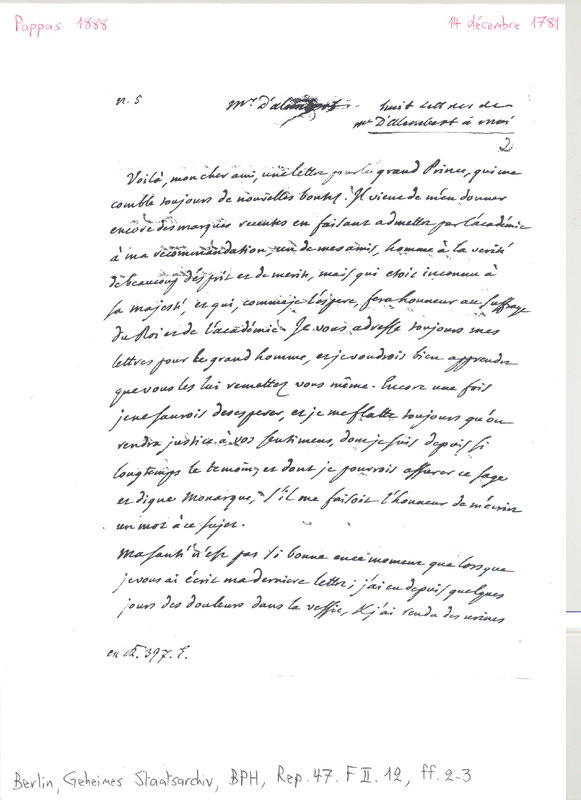 Pappas 1888
14 décembre 1781
n. 5
Mr. D'alembert
huit lettres de
Mr D'Alembert à moi
2
Voilà, mon cher ami, une lettre pour le grand Prince, qui me
comble toujours de nouvelles bontés. Il vient de m'en donner
encore des marques recentes en faisant admettre par l'académie
à ma recommandation, un de mes amis, homme à la verité
de beaucoup d'esprit et de merite, mais qui etoit inconnu à
sa majesté, et qui, comme je l'espere, fera honneur au suffrage
du Roi et de l'académie. Je vous adresse toujours mes
lettres pour ce grand homme, et je voudrois bien apprendre
que vous les lui remettez vous même. Encore une fois
je ne saurois desesperer, et je me flatte toujours qu'on
rendra justice à vos sentimens, dont je suis depuis si
longtemps le temoin, et dont je pourrois assurer ce sage
et digne Monarque, s'il me faisoit l'honneur de m'écrire
un mot à ce sujet.
Ma santé n'est pas si bonne en ce moment que lorsque
je vous ai écrit ma derniere lettre; j'ai eu depuis quelques
jours des douleurs dans la vessie, & j'ai rendu des urines
397. E.
Berlin, Geheimes Staatsarchiv, BPH, Rep. 47. F II. 12, ff. 2-3